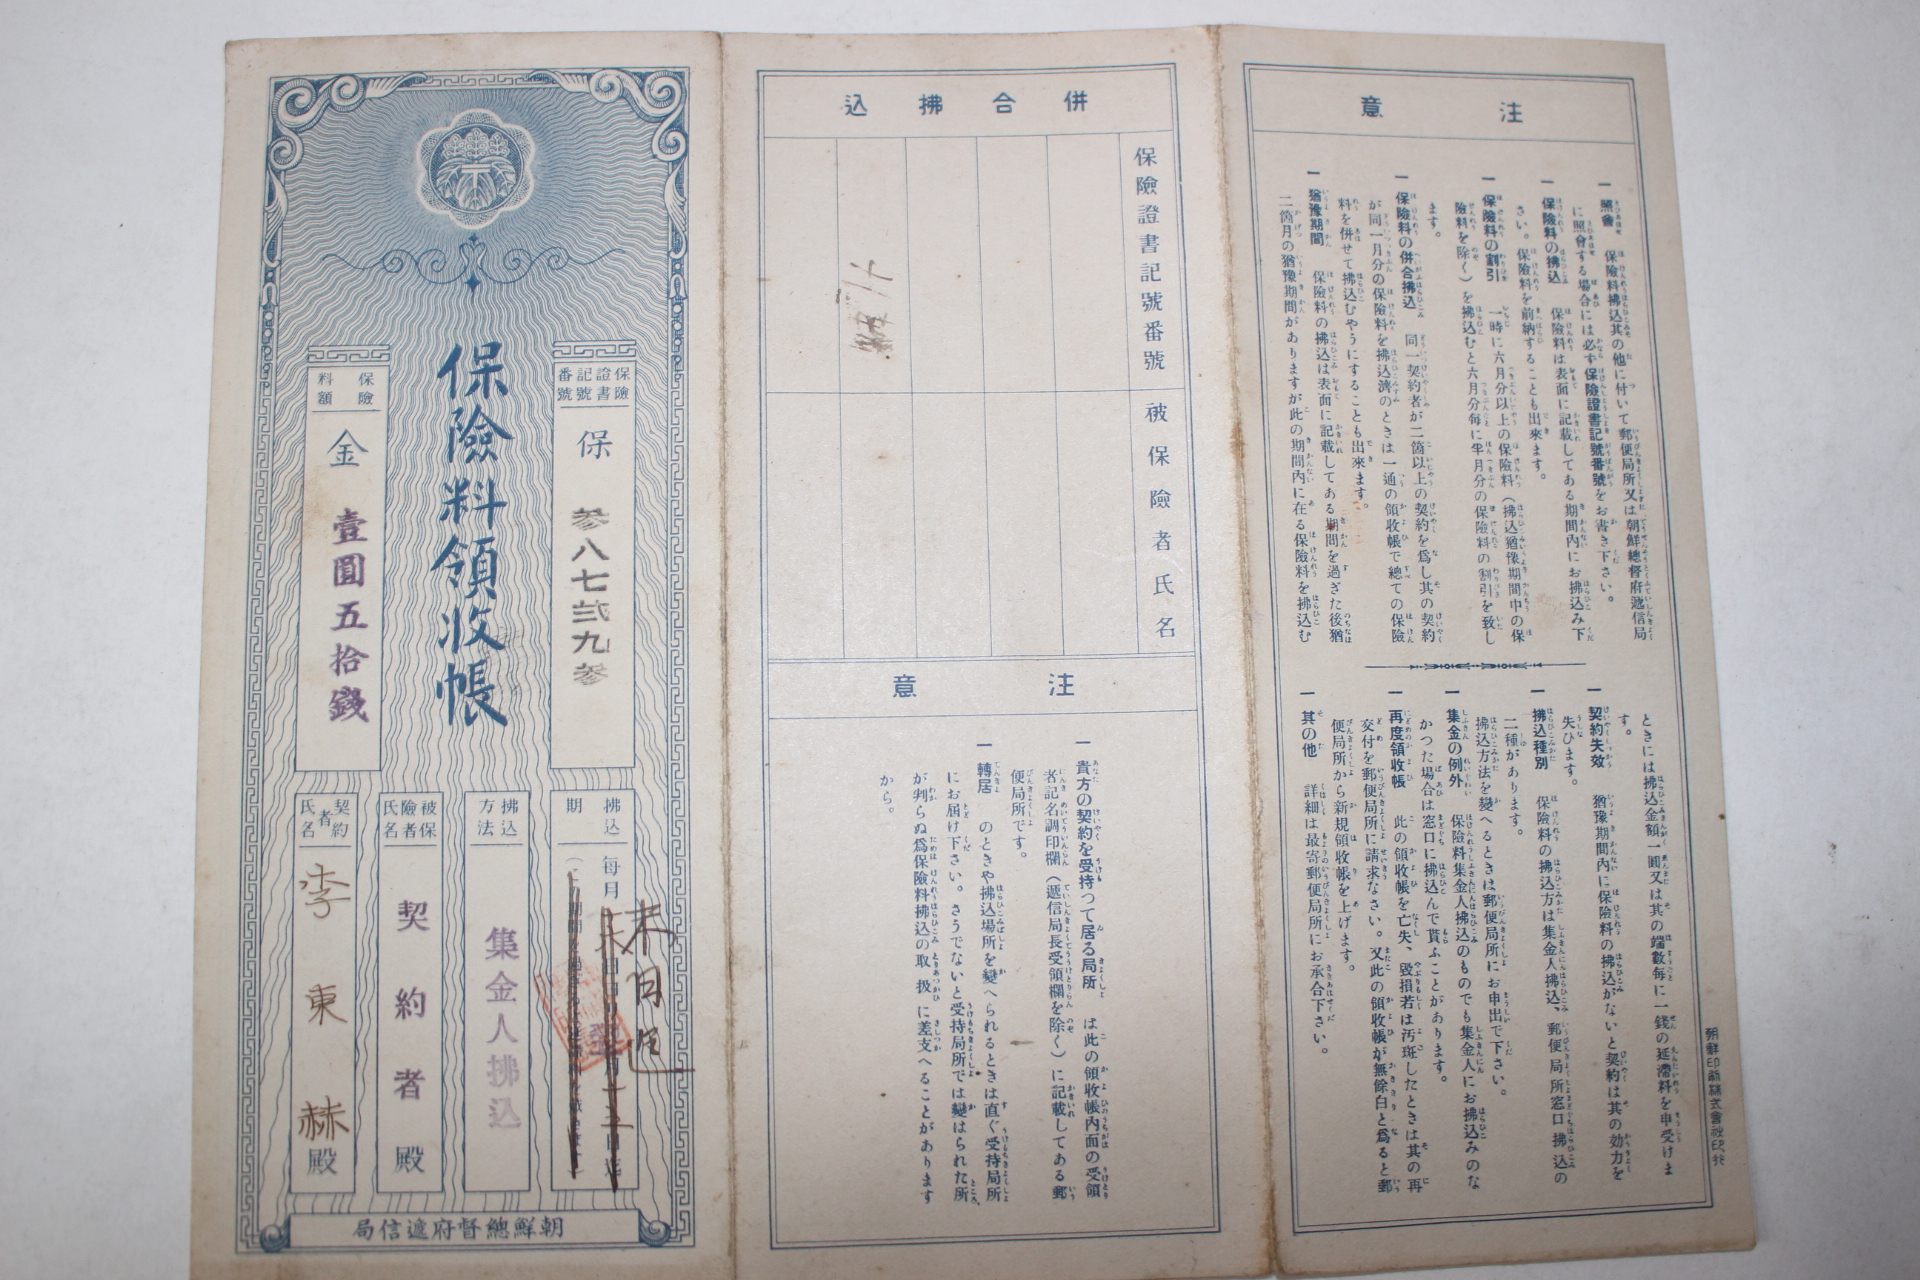 保險料領收帳
保險證書記號番號
保 参八七弐九参
保險料額
金 壹圓五拾錢
拂込期
毎月
拂込方法
集金人拂込
被保險者氏名
契約者殿
契約者氏名
李東赫殿
朝鮮總督府遞信局
併合拂込
保險證書記號番號
被保險者氏名
注意
一 貴方の契約を受持つて居る局所 は此の領收帳内面の受領
者記名調印欄(遞信局長受領欄を除く)に記載してある郵
便局所です。
一 轉居 のときや拂込場所を變へられるときは直ぐ受持局所
にお届け下さい。さうでないと受持局所では變はられた所
が判らぬ爲保險料拂込の取扱に差支へることがあります
から。
注意
一 照會 保險料拂込其の他に付いて郵便局所又は朝鮮總督府遞信局
に照會する場合には必ず保險證書記號番號をお書き下さい。
一 保險料の拂込 保險料は表面に記載してある期間内にお拂込み下
さい。保險料を前納することも出來ます。
一 保險料の割引 一時に六月分以上の保險料(拂込猶豫期間中の保
險料を除く)を拂込むと六月分毎に半月分の保險料の割引を致し
ます。
一 保險料の併合拂込 同一契約者が二箇以上の契約を爲し其の契約
が同一月分の保險料を拂込濟のときは一通の領收帳で總ての保險
料を併せて拂込むやうにすることも出來ます。
一 猶豫期間 保險料の拂込は表面に記載してある期間を過ぎた後猶
二箇月の猶豫期間がありますが此の期間内に在る保險料を拂込む
ときには拂込金額一圓又は其の端數毎に一錢の延滯料を申受けま
す。
一 契約失效 猶豫期間内に保險料の拂込がないと契約は其の効力を
失ひます。
一 拂込種別 保險料の拂込方は集金人拂込、郵便局所窓口拂込の
二種があります。
拂込方法を變へるときは郵便局所にお申出で下さい。
一 集金の例外 保險料集金人拂込のものでも集金人にお拂込みのな
かつた場合は窓口に拂込んで貰ふことがあります。
一 再度領收帳 此の領收帳を亡失、毀損若は汚斑したときは其の再
交付を郵便局所に請求なさい。又此の領收帳が無餘白と爲ると郵
便局所から新規領收帳を上げます。
一 其の他 詳細は最寄郵便局所にお承合下さい。
朝鮮印刷株式會社印行